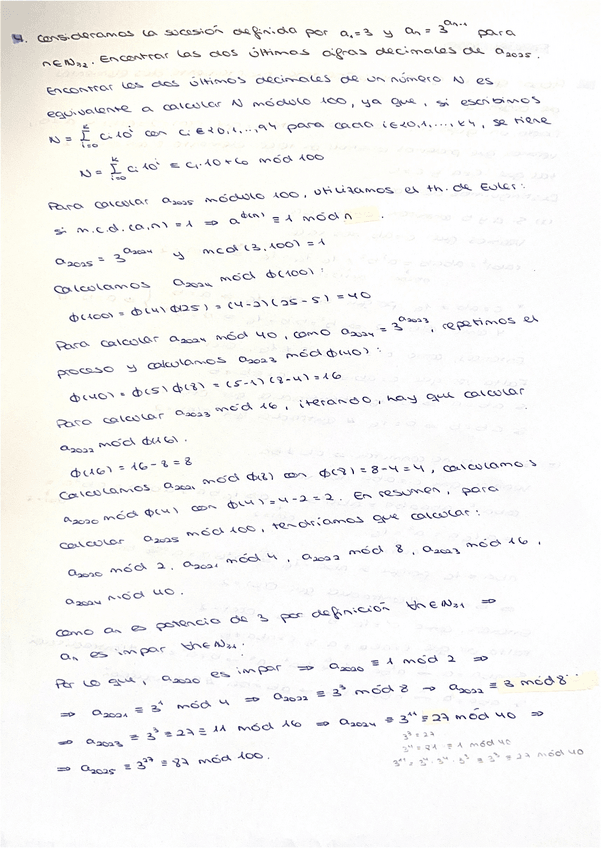 4. Consideramos la sucesión definida por a₁=3 y aₙ = 3^(aₙ₋₁) para
n∈ℕ≥2. Encontrar las dos últimas cifras decimales de a₂₀₂₅.
Encontrar los dos últimos decimales de un número N es
equivalente a calcular N módulo 100, ya que, si escribimos
N = Σ_{i=0}^{k} cᵢ10ⁱ con cᵢ∈{0,1,...,9} para cada i∈{0,1,...,k}, se tiene
N = Σ_{i=0}^{k} cᵢ10ⁱ ≡ c₁·10+c₀ mód 100
Para calcular a₂₀₂₅ módulo 100, utilizamos el th. de Euler:
si m.c.d.(a,n)=1 ⇒ a^ϕ(n) ≡ 1 mód n.
a₂₀₂₅ = 3^(a₂₀₂₄) y mcd(3,100)=1
Calculamos a₂₀₂₄ mód ϕ(100):
ϕ(100) = ϕ(4)ϕ(25) = (4-2)(25-5) = 40
Para calcular a₂₀₂₄ mód 40, como a₂₀₂₄ = 3^(a₂₀₂₃), repetimos el
proceso y calculamos a₂₀₂₃ mód ϕ(40):
ϕ(40) = ϕ(5)ϕ(8) = (5-1)(8-4) = 16
Para calcular a₂₀₂₃ mód 16, iterando, hay que calcular
a₂₀₂₂ mód ϕ(16).
ϕ(16) = 16-8 = 8
Calculamos a₂₀₂₁ mód ϕ(8) con ϕ(8) = 8-4 = 4, calculamos
a₂₀₂₀ mód ϕ(4) con ϕ(4) = 4-2 = 2. En resumen, para
calcular a₂₀₂₅ mód 100, tendríamos que calcular:
a₂₀₂₀ mód 2, a₂₀₂₁ mód 4, a₂₀₂₂ mód 8, a₂₀₂₃ mód 16,
a₂₀₂₄ mód 40.
Como aₙ es potencia de 3 por definición ∀n∈ℕ≥1 ⇒
aₙ es impar ∀n∈ℕ≥1.
Por lo que, a₂₀₂₀ es impar ⇒ a₂₀₂₀ ≡ 1 mód 2 ⇒
⇒ a₂₀₂₁ ≡ 3¹ mód 4 ⇒ a₂₀₂₂ ≡ 3³ mód 8 ⇒ a₂₀₂₂ ≡ 3 mód 8
⇒ a₂₀₂₃ ≡ 3³ ≡ 27 ≡ 11 mód 16 ⇒ a₂₀₂₄ ≡ 3¹¹ ≡ 27 mód 40 ⇒
3³ = 27
3⁴ = 81 ≡ 1 mód 40
3¹¹ = 3⁴·3⁴·3³ ≡ 3³ ≡ 27 mód 40
⇒ a₂₀₂₅ ≡ 3²⁷ ≡ 87 mód 100.